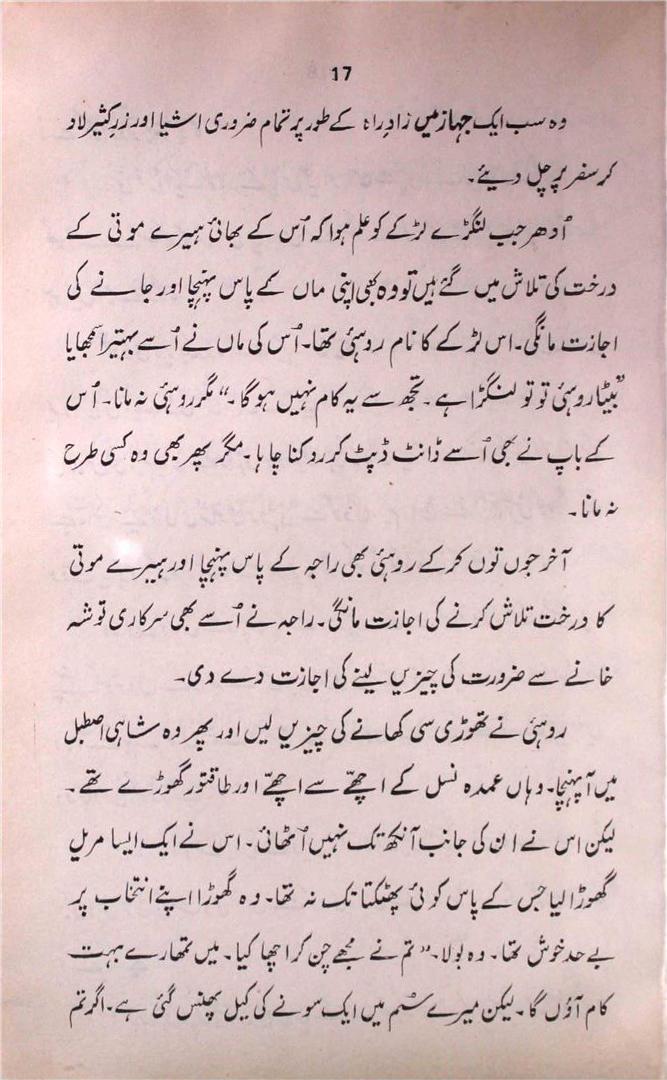 17
وہ سب ایک جہاز میں زادِ راہ کے طور پر تمام ضروری اشیا اور زرِ کثیر لاد
کر سفر پر چل دیئے۔
اُدھر جب لنگڑے لڑکے کو علم ہوا کہ اُس کے بھائی ہیرے موتی کے
درخت کی تلاش میں گئے ہیں تو وہ بھی اپنی ماں کے پاس پہنچا اور جانے کی
اجازت مانگی۔ اس لڑکے کا نام روہئی تھا۔ اُس کی ماں نے اُسے بہتیرا سمجھایا
”بیٹا روہئی تو تو لنگڑا ہے۔ تجھ سے یہ کام نہیں ہو گا۔“ مگر روہئی نہ مانا۔ اُس
کے باپ نے بھی اُسے ڈانٹ ڈپٹ کر روکنا چاہا۔ مگر پھر بھی وہ کسی طرح
نہ مانا۔
آخر جوں توں کر کے روہئی بھی راجہ کے پاس پہنچا اور ہیرے موتی
کا درخت تلاش کرنے کی اجازت مانگی۔ راجہ نے اُسے بھی سرکاری توشہ
خانے سے ضرورت کی چیزیں لینے کی اجازت دے دی۔
روہئی نے تھوڑی سی کھانے کی چیزیں لیں اور پھر وہ شاہی اصطبل
میں آ پہنچا۔ وہاں عمدہ نسل کے اچھے سے اچھے اور طاقتور گھوڑے تھے۔
لیکن اس نے ان کی جانب آنکھ تک نہیں اُٹھائی۔ اس نے ایک ایسا مریل
گھوڑا لیا جس کے پاس کوئی پھٹکتا تک نہ تھا۔ وہ گھوڑا اپنے انتخاب پر
بے حد خوش تھا۔ وہ بولا۔ ”تم نے مجھے چن کر اچھا کیا۔ میں تمھارے بہت
کام آؤں گا۔ لیکن میرے سُم میں ایک سونے کی کیل پھنس گئی ہے۔ اگر تم